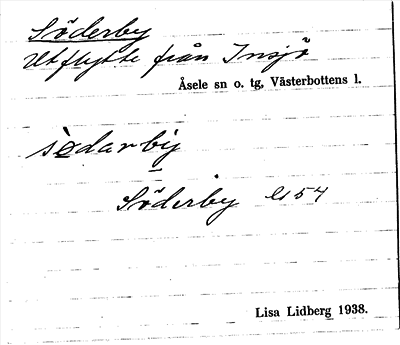 Söderby
Utflytte från Insjö
Åsele sn o. tg, Västerbottens l.
södarby
Söderby els 54
Lisa Lidberg 1938.